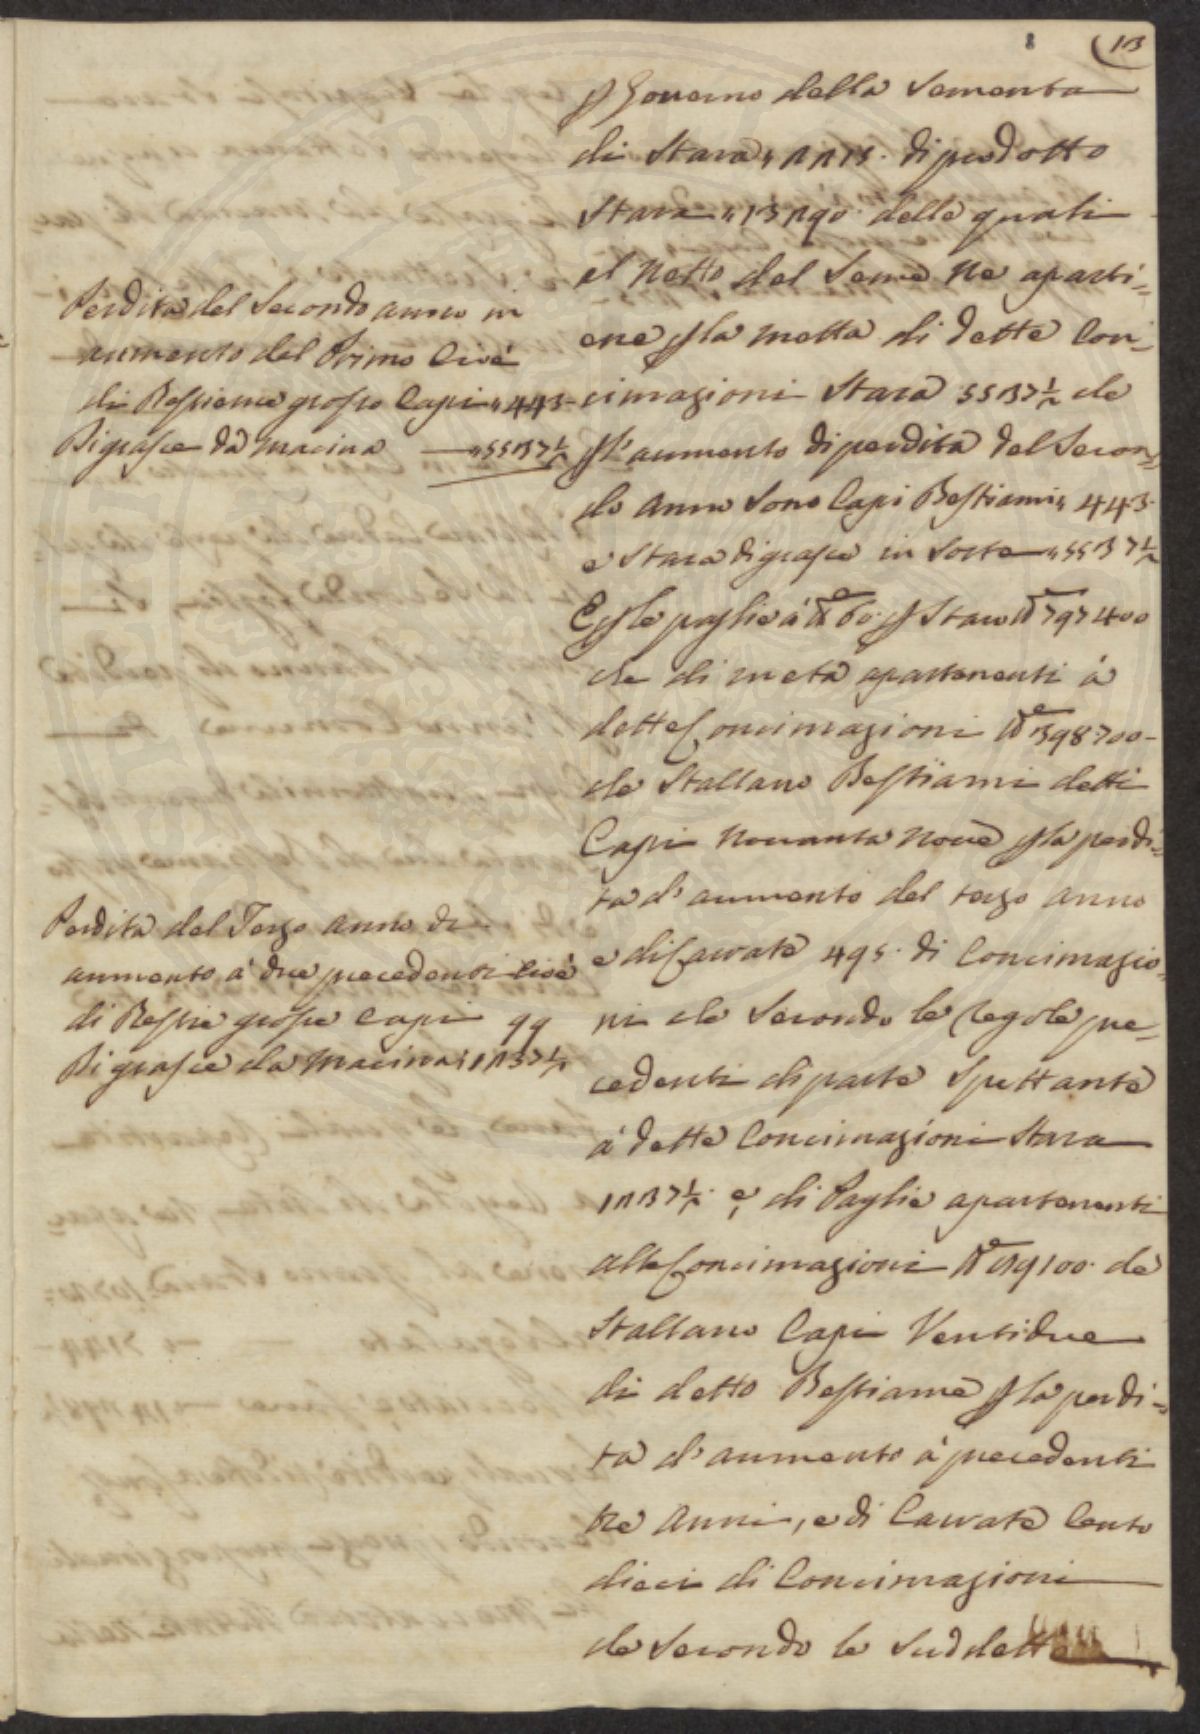 13
p Governo della Sementa
di Stara 2215. di prodotto
Stara 13290. delle quali
al netto del Seme ne aparti=
ene p la metta di dette Con=
cimazioni Stara 5537½ che
p l'aumento di perdita del Secon=
do anno Sono Capi Bestiami 443.
e Stara di grasce in Sorte 5537½
E p le paglie à 60. p Staro 797400
che di metà apartenenti à
dette Concimazioni 398700-
che Stallano Bestiami detti
Capi Novanta nove p la perdi=
ta d'aumento del terzo anno
e di Carrate 495. di Concimazio=
ni che Secondo le Regole pre=
cedenti di parte Spettante
à dette Concimazioni Stara
1237½. e, di Paglie apartenenti
alle Concimazioni 89100. che
Stallano Capi Ventidue
di detto Bestiame p la perdi=
ta d'aumento à precedenti
tre Anni, e di Carrate Cento
dieci di Concimazioni
che Secondo le Suddette
Perdita del Secondo anno in
aumento del Primo Cioè
di Bestiame grosso Capi 443-
Di grasce da macina 5537½
Perdita del Terzo anno di
aumento à due precedenti Cioè
di Bestie grosse Capi 99
Di grasce da Macina 1237½